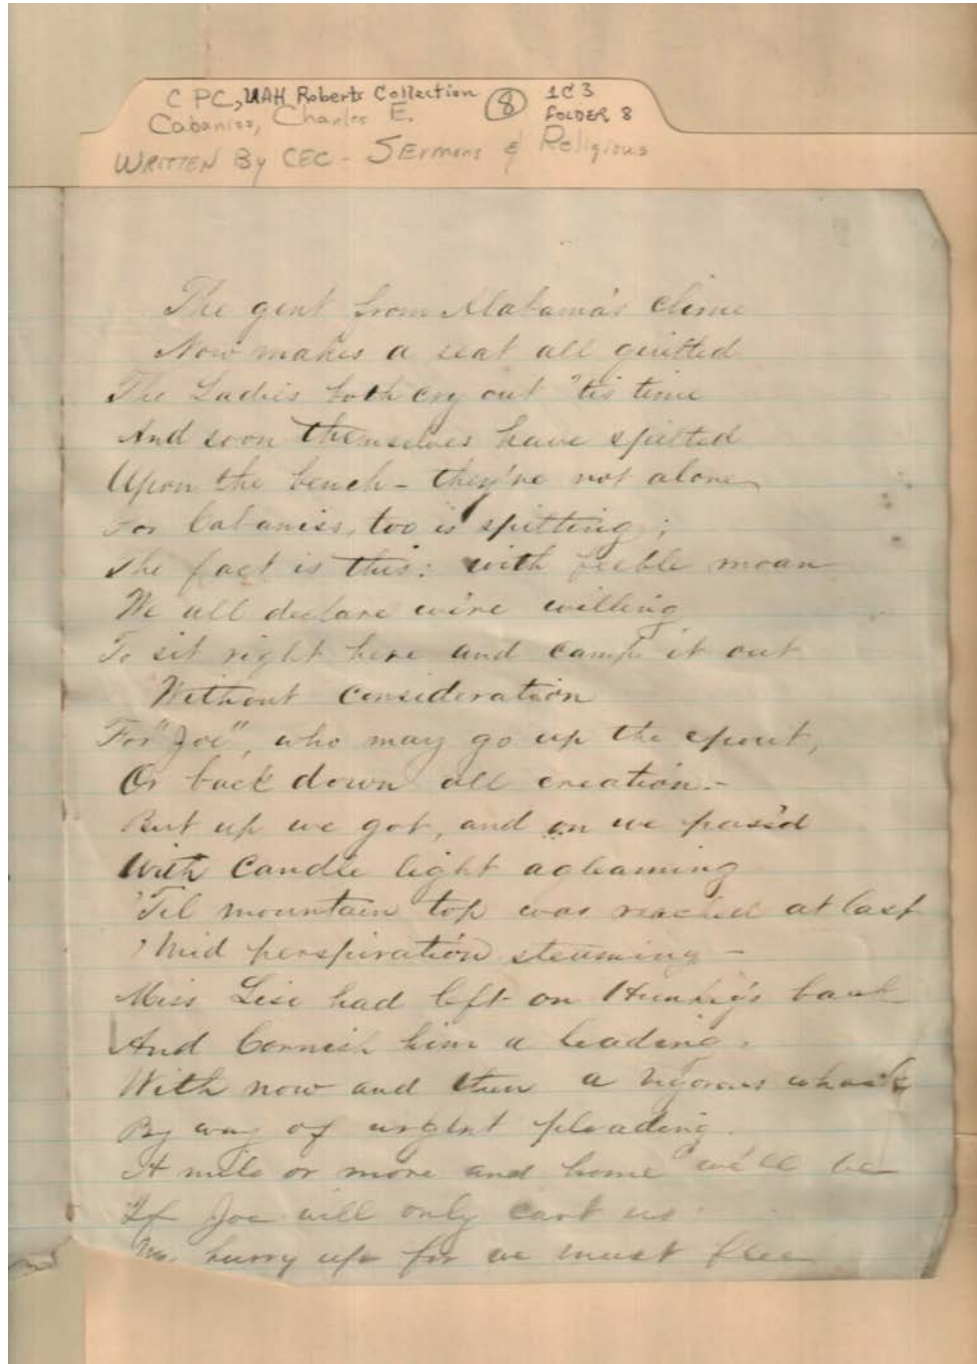 C PC, UAH Roberts Collection (8) 1C3
Cabaniss, Charles E. FOLDER 8
WRITTEN By CEC - SErmons & Religious
The gent from Alabama's clime
Now makes a seat all quilted
The Ladies both cry out 'tis time
And soon themselves have spilted
Upon the bench - they're not alone
For Cabaniss, too is spilting;
The fact is this: with feeble moan
We all declare we're willing
To sit right here and camp it out
Without consideration
For "Joe", who may go up the spout,
Or back down all creation.-
But up we got, and on we pass'd
With candle light agleaming
'Til mountain top was reached at last
'Mid perspiration steaming -
Miss Lise had left on back
And Cornish him a leading.
With now and then a vigorous whack
By way of urgent pleading.
A mile or more and home we'll be
If Joe will only cart us
hurry up for we must flee